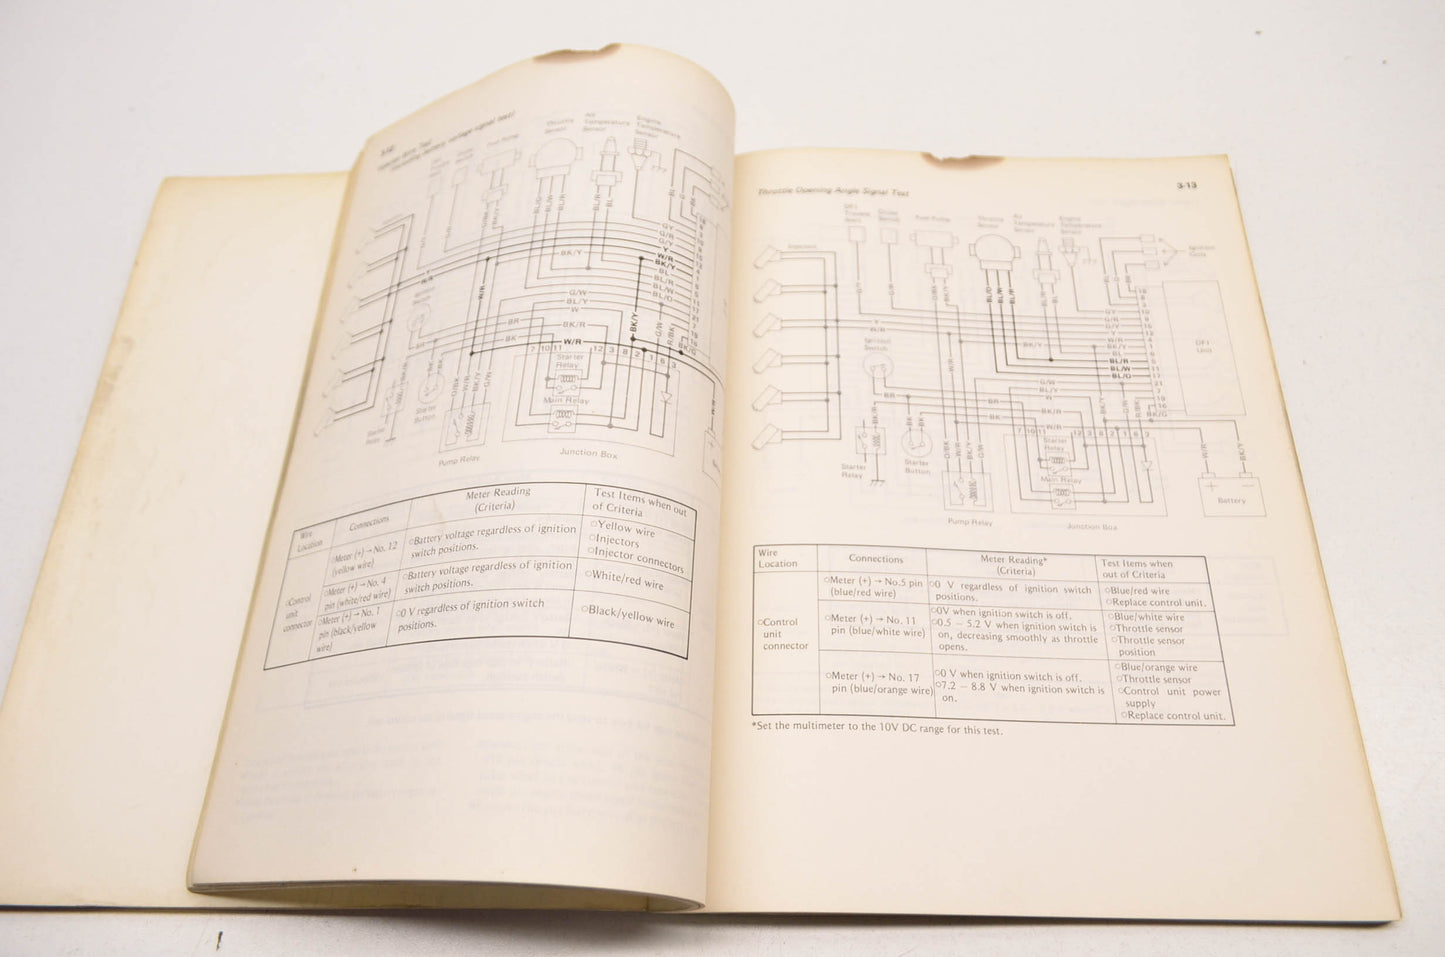 Throttle Sensor
Air Temperature Sensor
Engine Temperature Sensor
BL/O
BL/W
BL/R
BL
G/Y
G/R
G/Y
Y
W/R
BK/Y
BL
BL/R
BL/W
BL/O
BK/Y
W/R
G/W
BL/Y
W
BR
BK/R
BK
W/R
BK/Y
G/W
R/BK
BK/G
7 10 11 12 3 8 2 1 6 3
Starter
Relay
Main Relay
Starter
Relay
Starter
Button
BK/R
O/BK
W/R
BK/Y
G/W
Pump Relay
Junction Box
Wire
Location
Connections
Meter Reading
(Criteria)
Test Items when out
of Criteria
○Control
unit
connector
○Meter (+) → No. 12
(yellow wire)
○Battery voltage regardless of ignition
switch positions.
○Yellow wire
○Injectors
○Injector connectors
○Meter (+) → No. 4
pin (white/red wire)
○Battery voltage regardless of ignition
switch positions.
○White/red wire
○Meter (+) → No. 1
pin (black/yellow
wire)
○0 V regardless of ignition switch
positions.
○Black/yellow wire
Throttle Opening Angle Signal Test
3-13
Fuel Pump
Throttle
Sensor
Air
Temperature
Sensor
Engine
Temperature
Sensor
Injectors
Ignition
Coils
Ignition
Switch
DFI
Unit
BL/O
BL/W
BL/R
Y
W/R
BK/Y
BL
BL/R
BL/W
BL/O
G/W
BL/Y
W
BR
BK/R
BK
W/R
BK/G
7 10 11 12 3 8 2 1 6 3
Starter
Relay
Main Relay
Starter
Relay
Starter
Button
O/BK
W/R
BK/Y
G/W
Pump Relay
Junction Box
W/R
BK/Y
+ −
Battery
Wire
Location
Connections
Meter Reading*
(Criteria)
Test Items when
out of Criteria
○Control
unit
connector
○Meter (+) → No.5 pin
(blue/red wire)
○0 V regardless of ignition switch
positions.
○Blue/red wire
○Replace control unit.
○Meter (+) → No. 11
pin (blue/white wire)
○0V when ignition switch is off.
○0.5 – 5.2 V when ignition switch is
on, decreasing smoothly as throttle
opens.
○Blue/white wire
○Throttle sensor
○Throttle sensor
position
○Meter (+) → No. 17
pin (blue/orange wire)
○0 V when ignition switch is off.
○7.2 – 8.8 V when ignition switch is
on.
○Blue/orange wire
○Throttle sensor
○Control unit power
supply
○Replace control unit.
*Set the multimeter to the 10V DC range for this test.